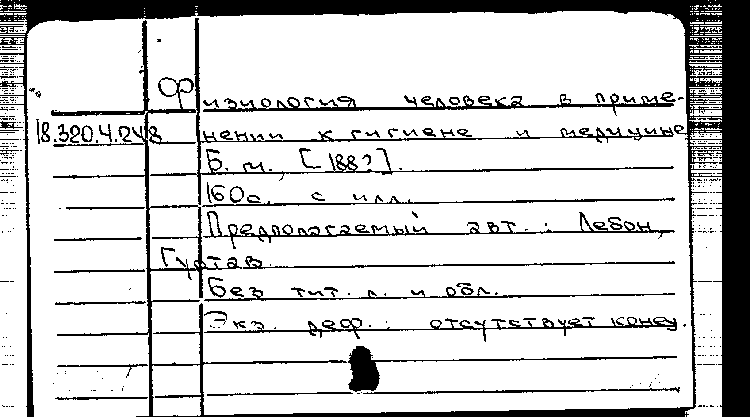 Физиология человека в приме-
18.320.4.248 нении к гигиене и медицине
Б. м., [188?].
160с. с илл.
Предполагаемый авт.: Лебон,
Густав.
Без тит. л. и обл.
Экз. деф.: отсутствует конец.